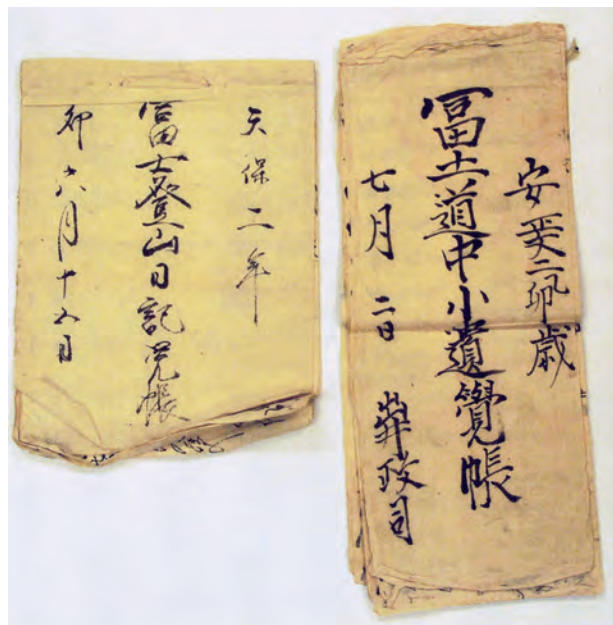 安政二卯歳
冨士道中小遣覺帳
七月二日 政司
天保二年
冨士登山日記覚帳
卯六月十五日